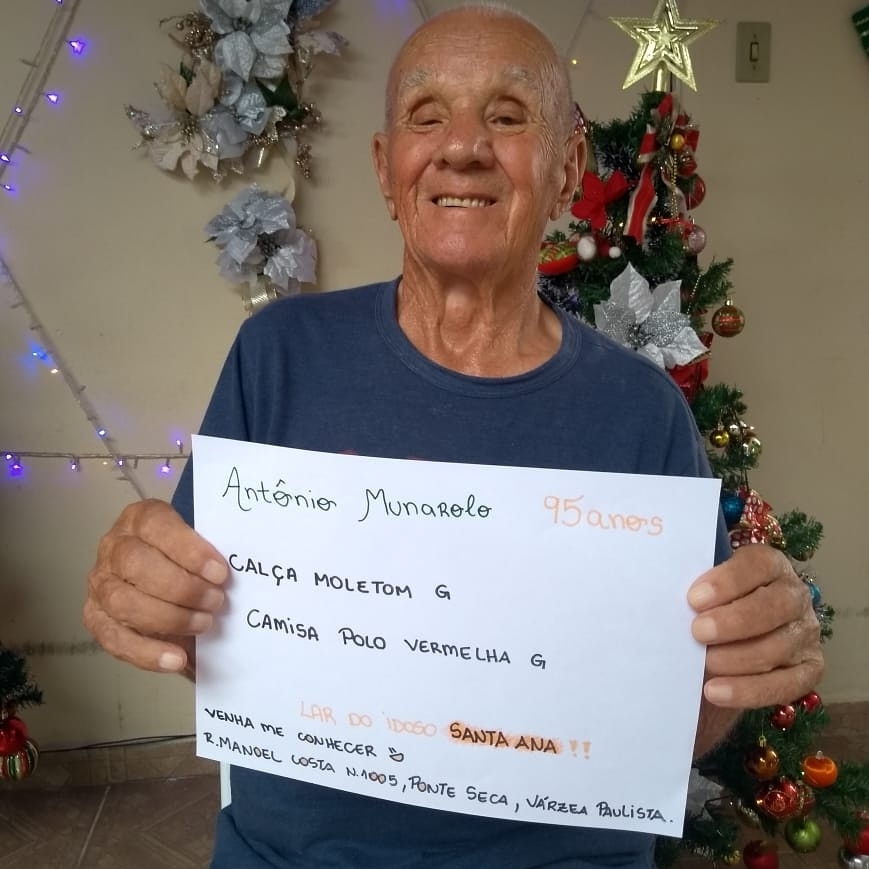 Antônio Munarolo 95 anos
CALÇA MOLETOM G
CAMISA POLO VERMELHA G
LAR DO IDOSO SANTA ANA !!
VENHA ME CONHECER
R. MANOEL COSTA N.1005, PONTE SECA, VÁRZEA PAULISTA.